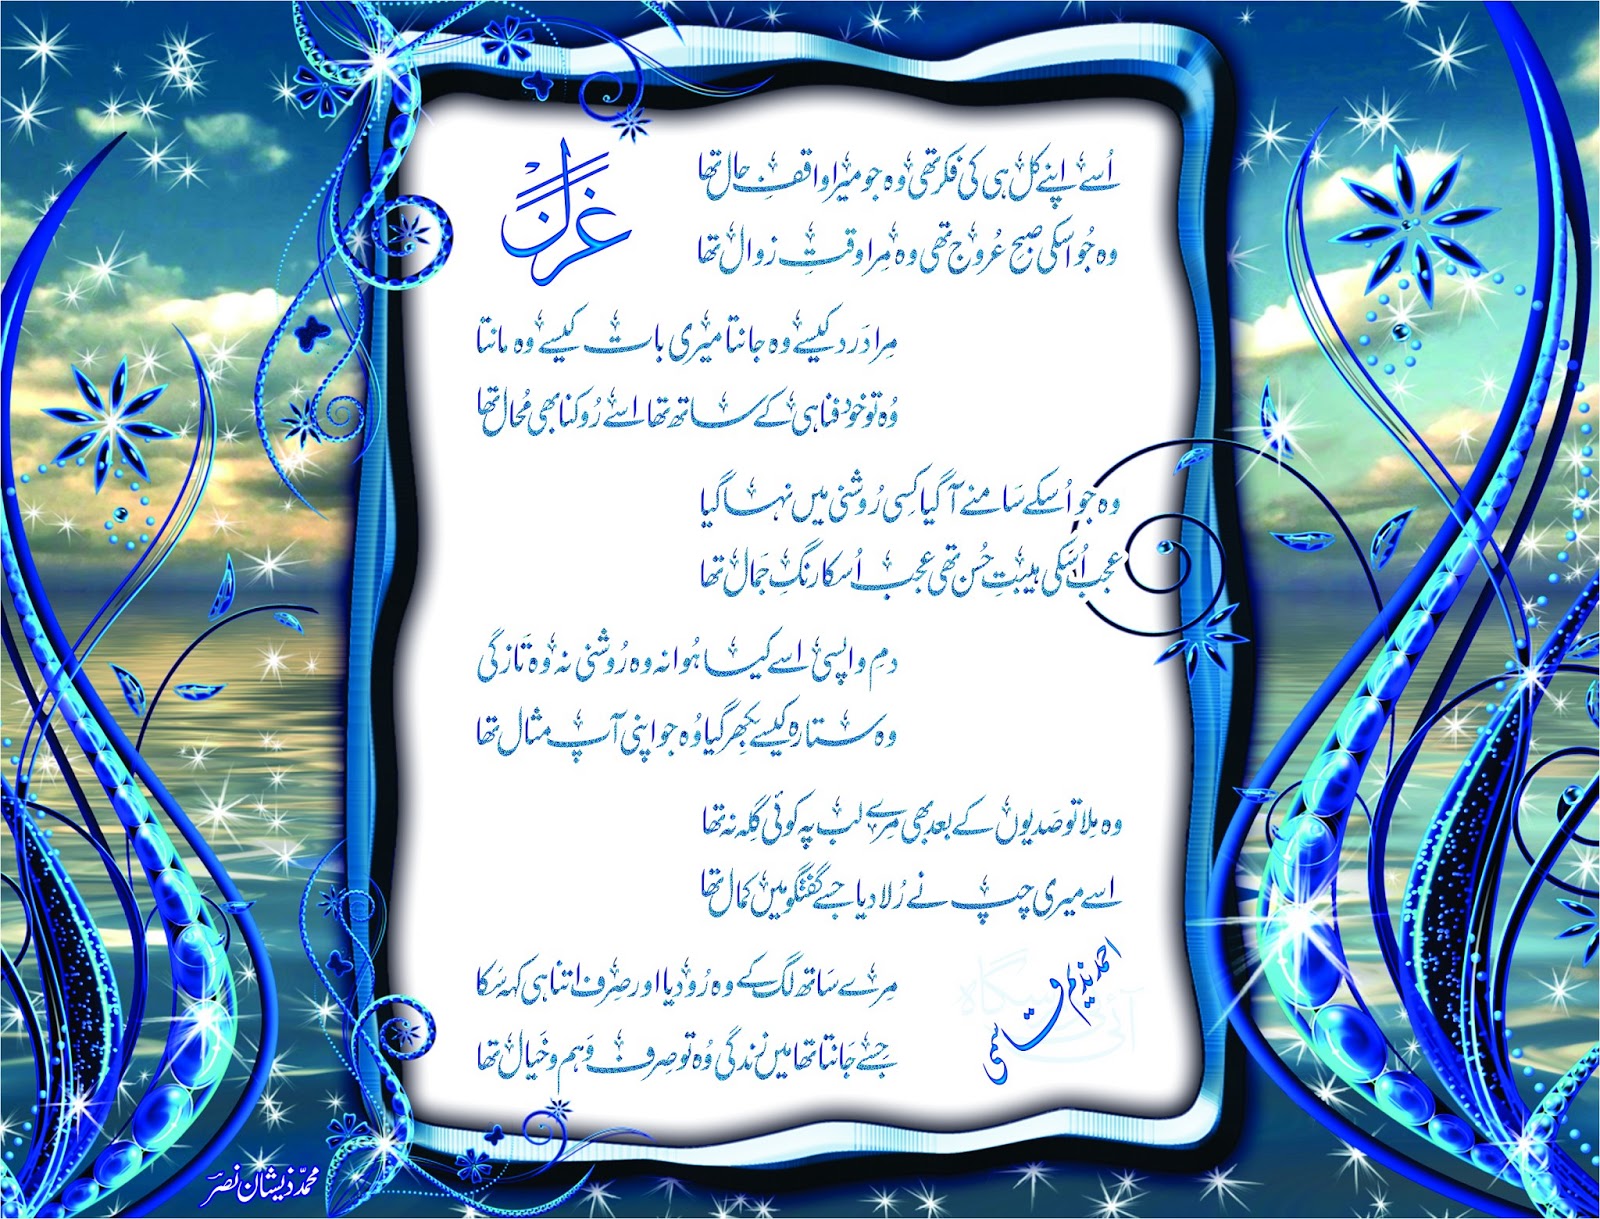 غزل
اُسے اپنے کل ہی کی فکر تھی وہ جو میرا واقفِ حال تھا
وہ جُو اسکی صبح عُروج تھی وہ مِرا وقتِ زوال تھا
مِرا دَرد کیسے وہ جانتا میری بات کیسے وہ مانتا
وُہ تو خود فنا ہی کے ساتھ تھا اسے رُوکنا بھی مُحال تھا
وہ جو اُسکے سَامنے آ گیا کِسی رُوشنی میں نہا گیا
عجب اُسکی ہیبتِ حُسن تھی عجب اُسکا رنگِ جَمال تھا
دمِ واپسی اسے کیا ہُوا نہ وہ رُوشنی نہ وُہ تَازگی
وہ ستارہ کیسے بکھر گیا وُہ جو اپنی آپ مثال تھا
وہ مِلا تو صَدیوں کے بعد بھی مِرے لب پہ کوئی گِلہ نہ تھا
اسے میری چپ نے رُلا دیا جسے گفتگو میں کمال تھا
مِرے سَاتھ لگ کے وہ رُو دیا اور صِرف اتنا ہی کہہ سَکا
جَسے جَانتا تھا میں زندگی وُہ تو صِرف وَہم و خَیال تھا
احمد ندیم قاسمی
محمّد ذیشان نصر